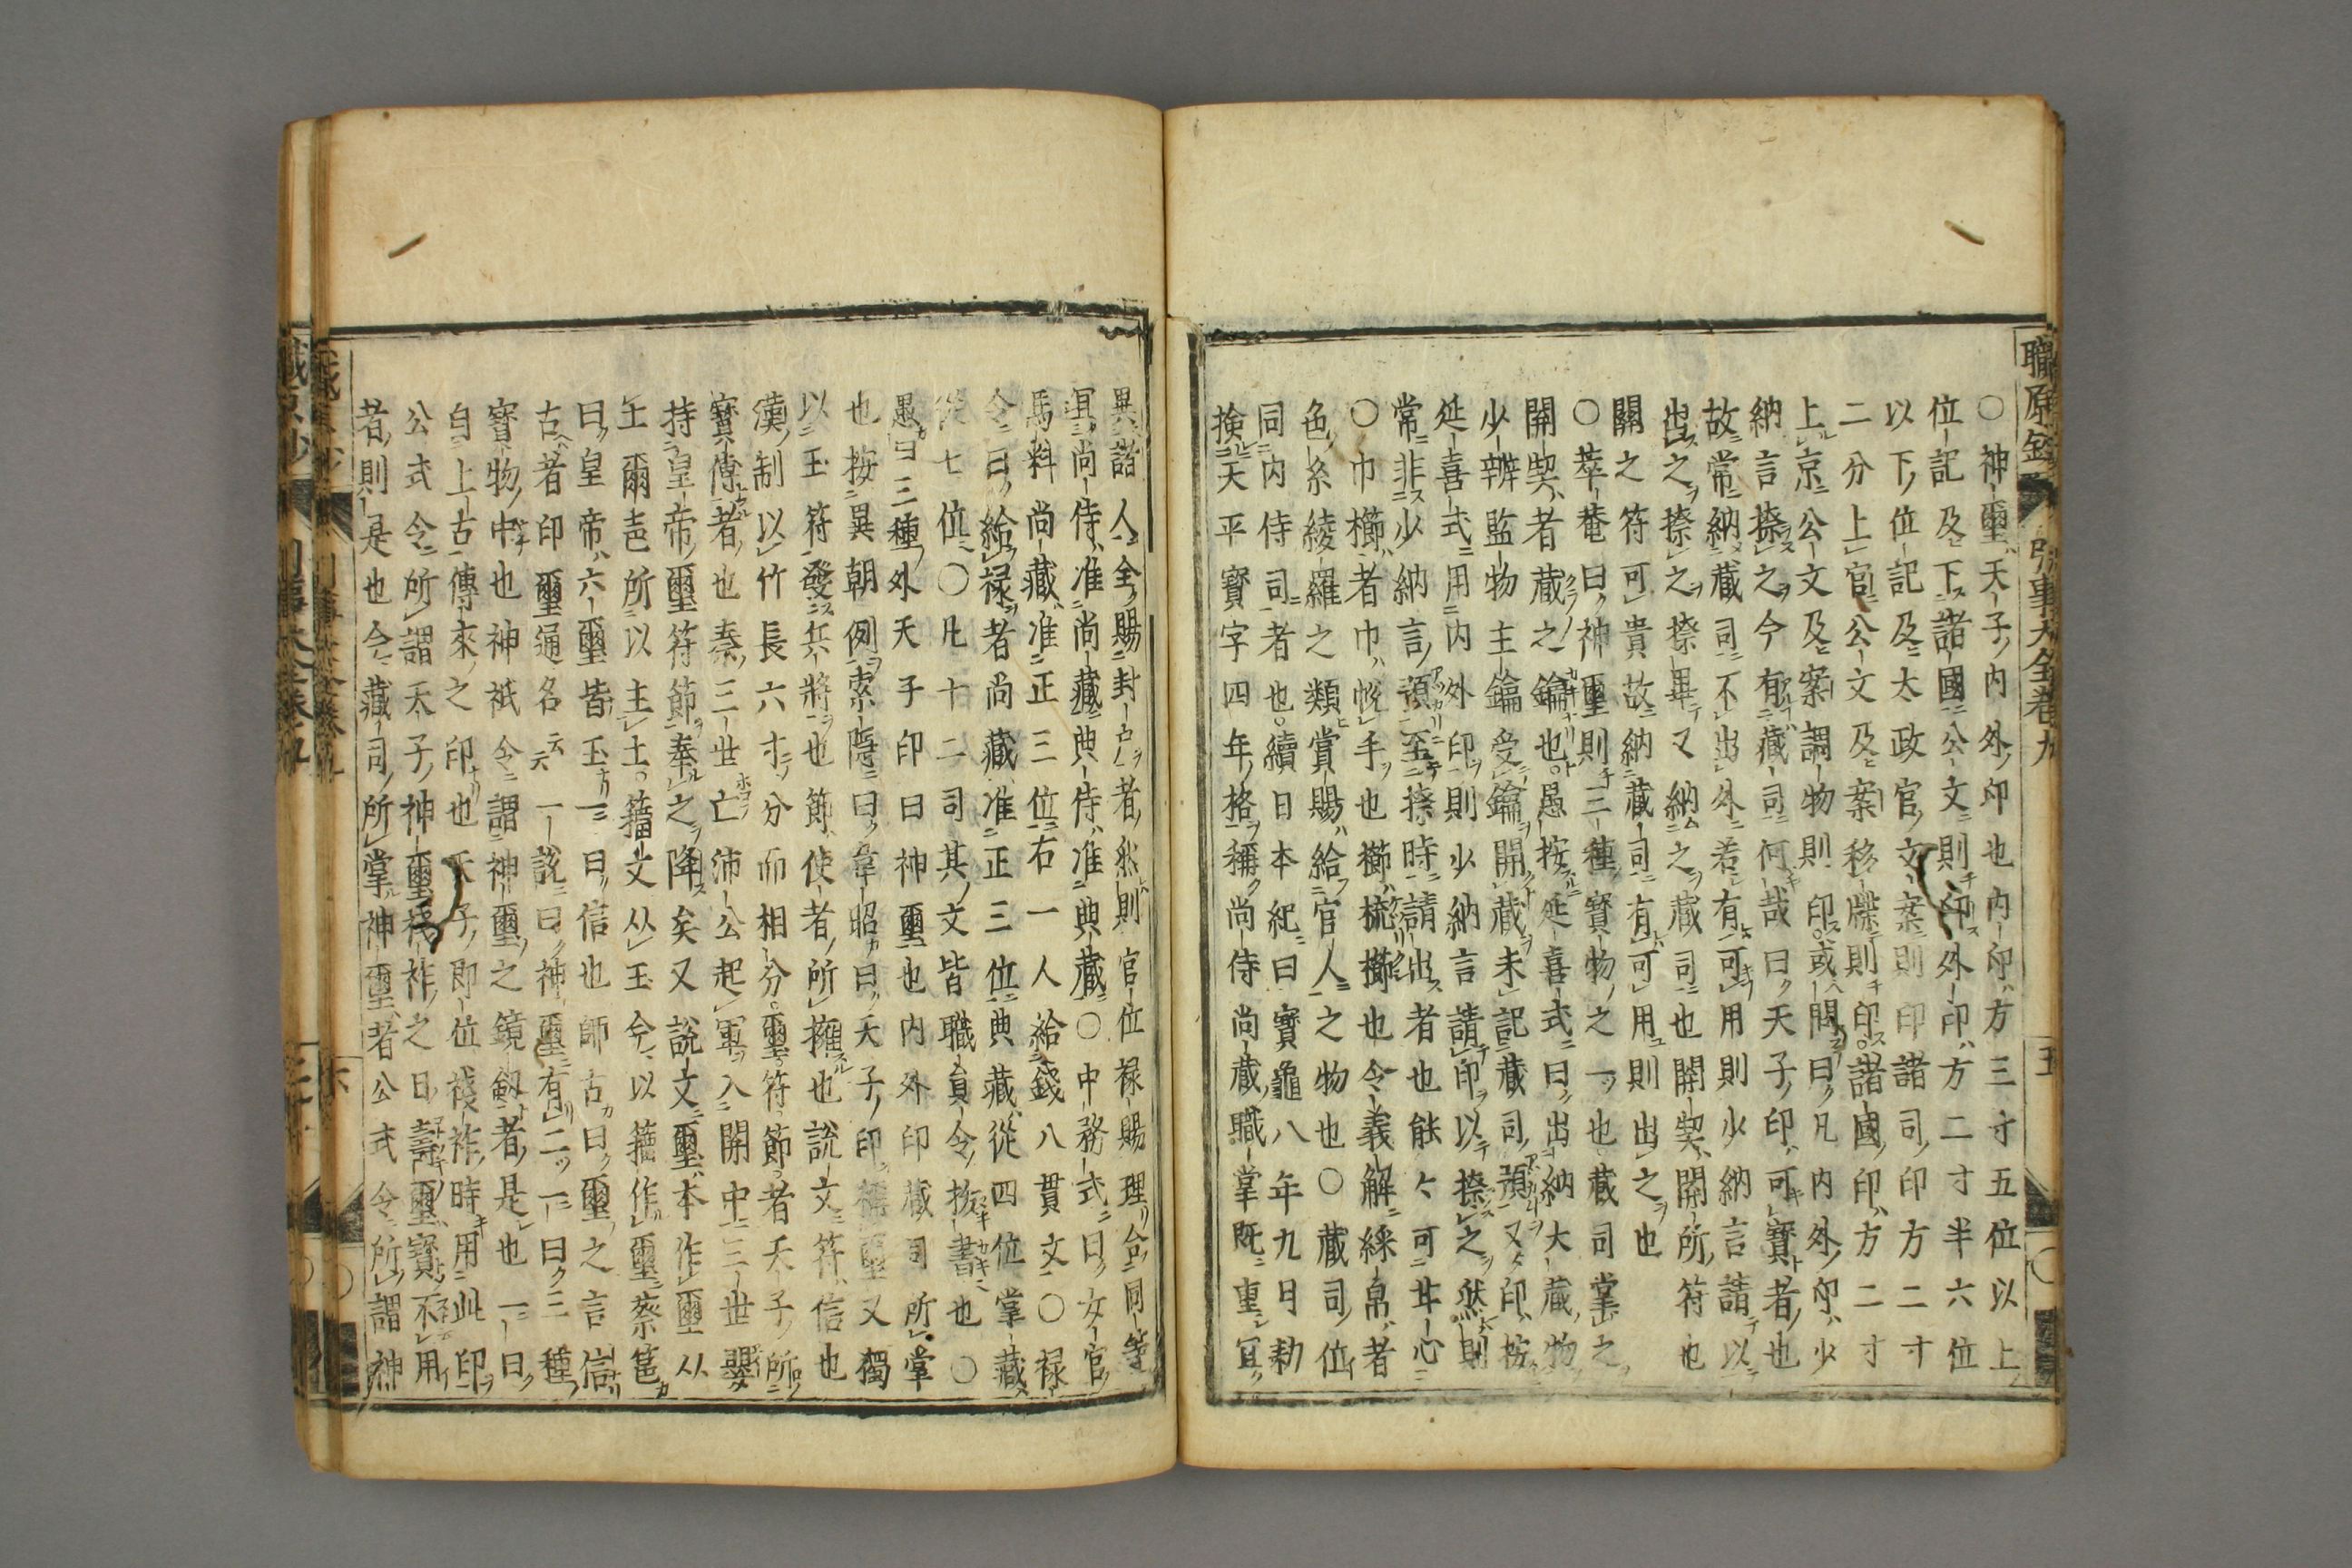 職原鈔 引事大全卷九 五
○神璽ハ天子ノ内外ノ印也内印ハ方三寸五位以上ノ
位記及ヒ下ス諸國ニ公文ニ則チ印ス外印ハ方二寸半六位
以下ノ位記及ヒ太政官ノ文案ニ則印諸司ノ印方二寸
二分上官ニ公文及ヒ案移牒ニ則チ印ス。諸國ノ印ハ方二寸
上ル京ニ公文及ヒ案調物則印ス。或問曰ク凡内外ノ印ハ少
納言捺ス之ヲ今有ハ藏司ニ何ソ哉曰ク天子ノ印ハ可キ寶ト者ノ也
故ニ常ニ納メ藏司ニ不出外ニ若シ有可キ用則少納言請テ以テ
出之ヲ捺之ヲ捺畢テ又納ム之ヲ藏司ニ也開契ハ開所ノ符也
關之符可貴故ニ納ニ藏司ニ有可用ユ則出之ヲ也
○萃菴曰ク神璽則チ三種ノ寶物ノ之一ツ也藏司掌ル之ヲ
開契ハ者藏之鑰也。愚按ルニ延喜式ニ曰ク出納大藏ノ物
少辨監物主鑰受鑰ヲ開ク藏ヲ未記ニ藏司ノ預又ク印ハ按
延喜式ニ用ニ内外印ヲ則少納言請テ印ヲ以テ捺ス之ヲ然則
常ニ非ス少納言ノ預ニ至テ捺時ニ請出ス者也能々可甘心
○巾櫛ハ者巾ハ帨手ヲ也櫛ハ梳櫛也令義解ニ綵帛ハ者
色ノ糸綾羅之類ヒ賞賜ハ給フ官人ニ之物也○藏司ノ位
同ニ内侍司ニ者也。續日本紀ニ曰寶龜八年九日勅
撿ルニ天平寶字四年ノ格ヲ稱ク尚侍尚藏ノ職掌既ニ重シ宜ク
異諸人ニ全賜ニ封戸ヲ者ノ然則官位禄賜理リ合ニ同等
宜尚侍ハ准ニ尚藏ニ典侍ハ准ニ典藏ニ○中務式ニ曰ク女官ノ
馬料尚藏ハ准ニ正三位ニ右一人給ニ錢八貫文○禄
令ニ曰ク給禄ヲ者尚藏准ニ正三位ニ典藏ハ從四位掌藏ハ
從七位ニ○凡十二司其ノ文皆職員令ノ抜書也○
愚曰三種ノ外天子印曰神璽也内外印藏司所掌
也按ニ異朝例ヲ索隱ニ曰ク韋昭カ曰ク天子ノ印ヲ稱璽又獨
以ニ玉符發ニス兵將ヲ也節ハ使者ノ所擁スル也説文ニ符ハ信也
漢ノ制以竹長六寸ニシ分而相分。璽符節ハ者天子ノ所ロノ
寶ト傳フル者ノ也秦ノ三世亡ホロフ沛公起軍ヲ入ニ開中ニ三世嬰
持ニ皇帝ノ璽符節ヲ奉ル之ヲ降ス矣又説文ニ璽ハ本作璽从
土爾壴所ニ以主土。籀文从玉今以籀作ル璽ニ蔡邕カ
曰ク皇帝ハ六璽皆玉ナリ三曰ク信也師古カ曰ク璽ノ之言信ナリ
古ヘハ者印璽通名云云一説ニ曰ク神璽ニ有二ツ一ニ曰ク三種ノ
寶物ノ中也神祇令ニ謂神璽ノ之鏡劒者ノ是也一ニ曰ク
自上古傳來ノ之印也天子ノ即位踐祚ノ時キ用ニ此印ヲ
公式令ニ所謂天子ノ神璽踐祚ノ之日ノ壽璽ハ寶ニ不用
者ノ則是也令ニ藏司ノ所掌ル神璽ハ者公式令ニ所謂神